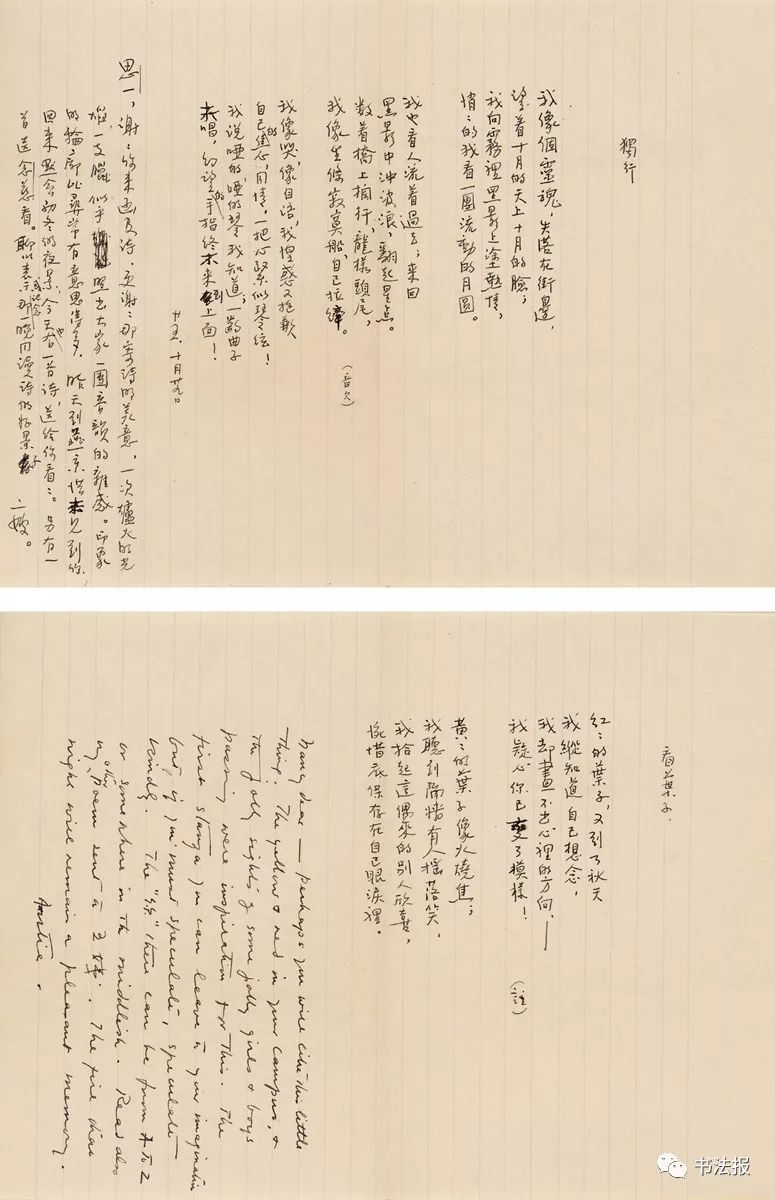 獨行
我像個靈魂,失落在街邊,
望着十月的天上十月的臉;
我向霧裡黑影上塗熱情,
悄〻的我看一團流動的月圓。
我也看人流着過去;來回
黑影中沖波浪,翻起星点。
数着橋上欄杆,龍樣頭尾,
我像坐條寂寞船,自己拉縴。
(音欠)
我像哭,像自語,我惶惑又抱歉
自己的心,用情,一把心緊似琴絃!
我说哑的,哑的琴我知道;一齣曲子
未唱,幻望的手指終未来到上面!
廿五、十月廿九日
思一,謝〻你来函及诗,更謝〻那寄詩的美意,一次爐火的光
一支臘,似乎 照出大家一團音韻的雜感。印象
的輪廓比尋常有意思得多。昨天到燕京惜未見到你,
回来 初冬的夜景,今天也有一首詩,送給你看〻。另有一
首送念慈看。聊以表示或纪念那晚同读诗的好景
二嫂。
看葉子
紅〻的葉子,又到了秋天
我縱知道自己想念,
我却畫不出心裡的方向,——
我疑心你已變了模樣!
(註)
黃〻的葉子像火燒焦;
我聽到隔墙有人摇落笑,
我拾起這偶來的別人欣喜,
惋惜底保存在自己眼淚裡。
Nancy dear — perhaps you will like this little
thing. The yellow & red in your campus, &
the jolly sights of some jolly girls & boys
passing were inspiration for this. The
first stanza you can leave to your imagination
but if you must speculate, speculate
kindly. The "你" there can be from A to Z
or somewhere in the middlish. Read also
my other poem sent to The fire side
night will remain a pleasant memory.
书法报